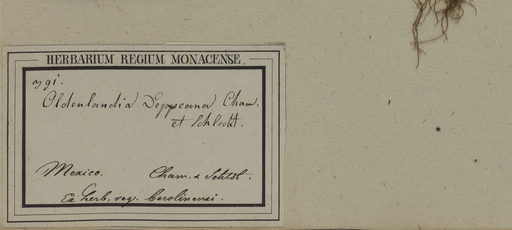 HERBARIUM REGIUM MONACENSE.
391.
Oldenlandia Deppeana Cham.
et Schlecht.
Mexico. Cham. & Schldl.
Ex herb. reg. Berolinensi.